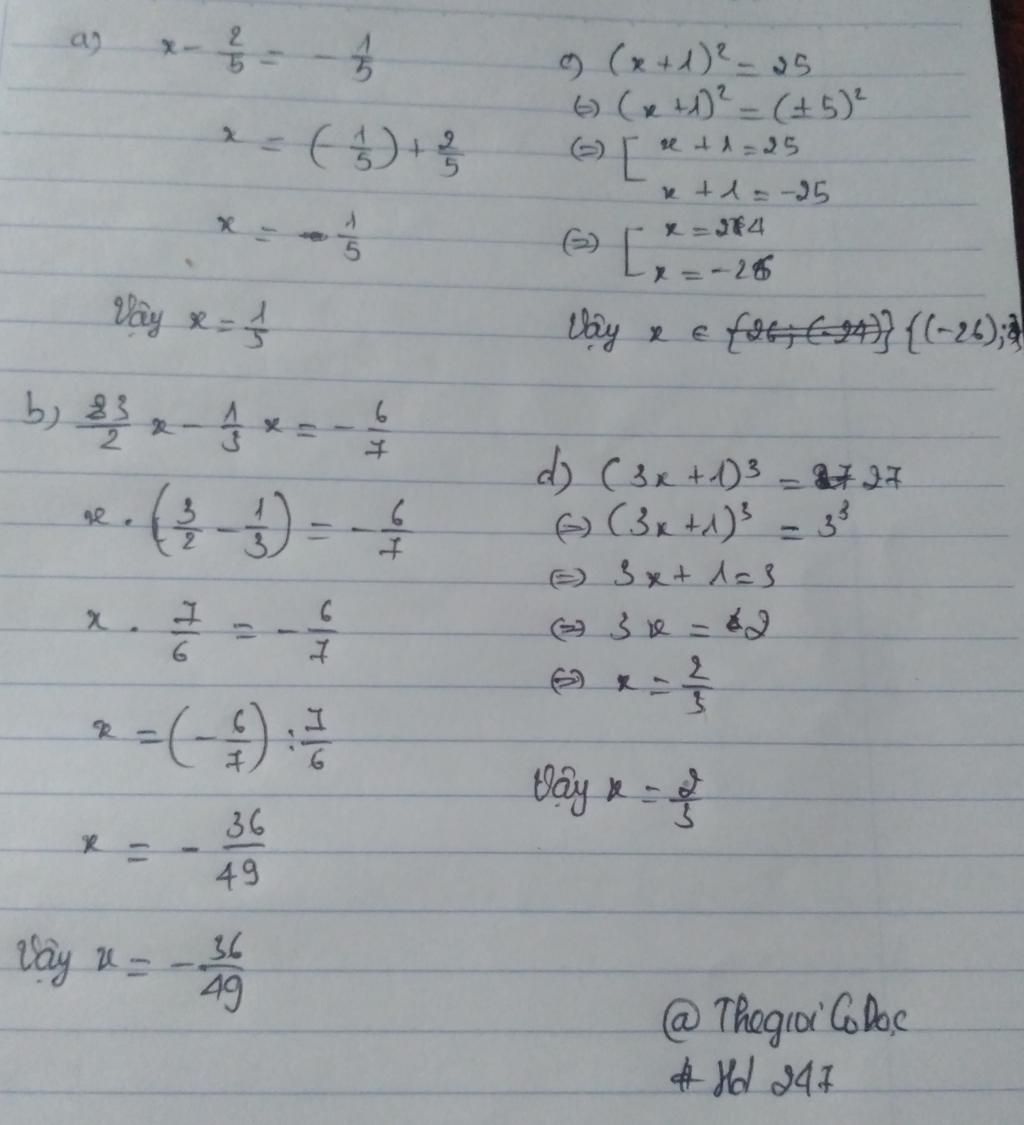 a) x - 2/5 = - 1/5
x = (- 1/5) + 2/5
x = 1/5
Vậy x = 1/5
b) 3/2 x - 1/3 x = - 6/7
x . (3/2 - 1/3) = - 6/7
x . 7/6 = - 6/7
x = (- 6/7) : 7/6
x = - 36/49
Vậy x = - 36/49
c) (x + 1)² = 25
(=) (x + 1)² = (± 5)²
(=) [ x + 1 = 25
x + 1 = -25
(=) [ x = 24
x = -26
Vậy x ∈ {26; (-24)} {(-26);
d) (3x + 1)³ = 27 27
(=) (3x + 1)³ = 3³
(=) 3x + 1 = 3
(=) 3x = 2
(=) x = 2/3
Vậy x = 2/3
@ ThegioiCoDoc
# Hd 247